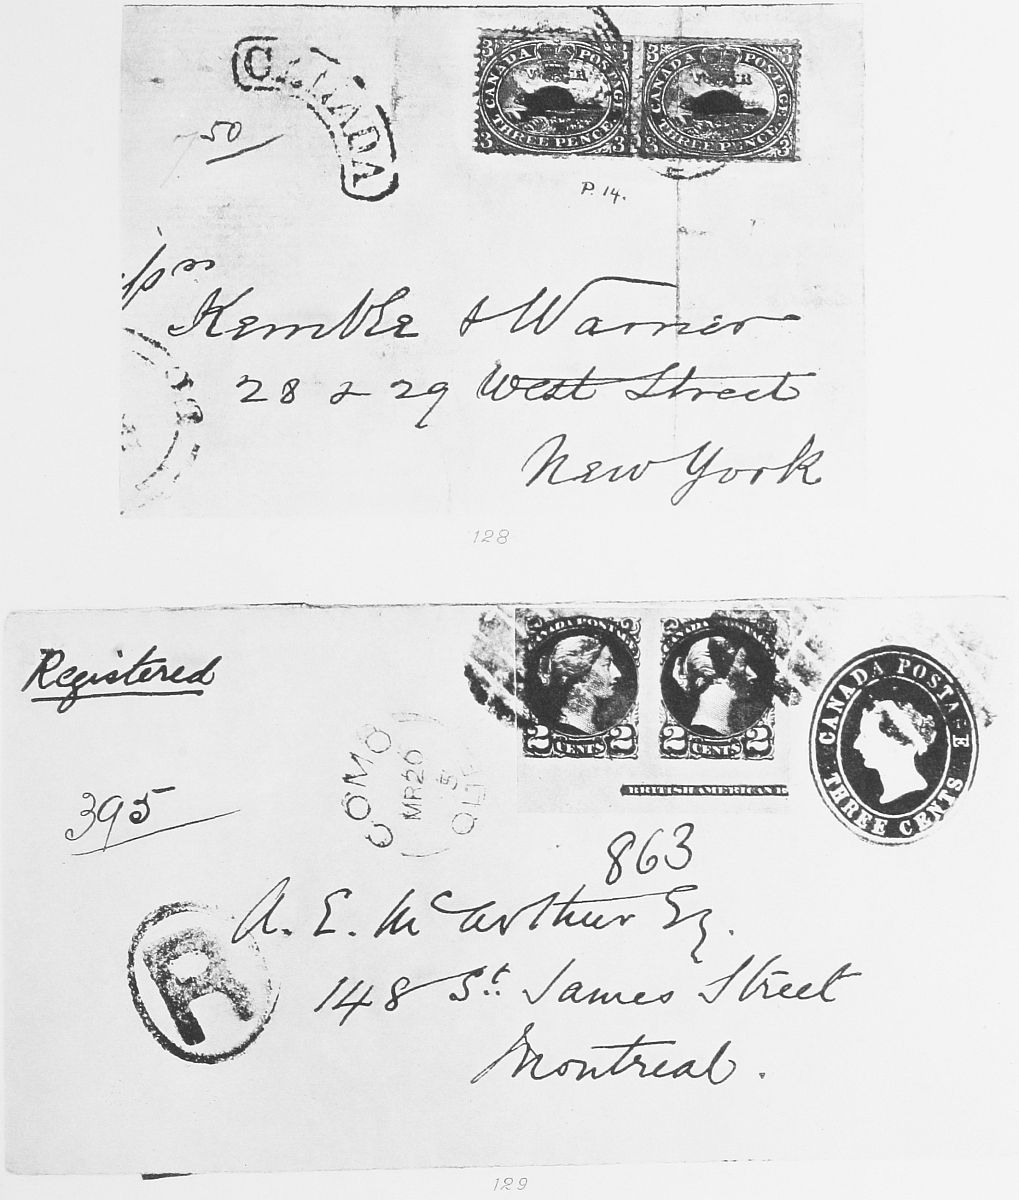 CANADA
50
3 CANADA POSTAGE 3
THREE PENCE
3 3
3 CANADA POSTAGE 3
THREE PENCE
3 3
P. 14.
Kemble & Warner
28 & 29 West Street
New York
128
Registered
CANADA POSTAGE
2 CENTS 2
CANADA POSTAGE
2 CENTS 2
BRITISH AMERICAN
CANADA POSTAGE
THREE CENTS
COMO
MR 20
QUE
395
863
A. E. McArthur Esq.
148 St. James Street
Montreal.
R
129